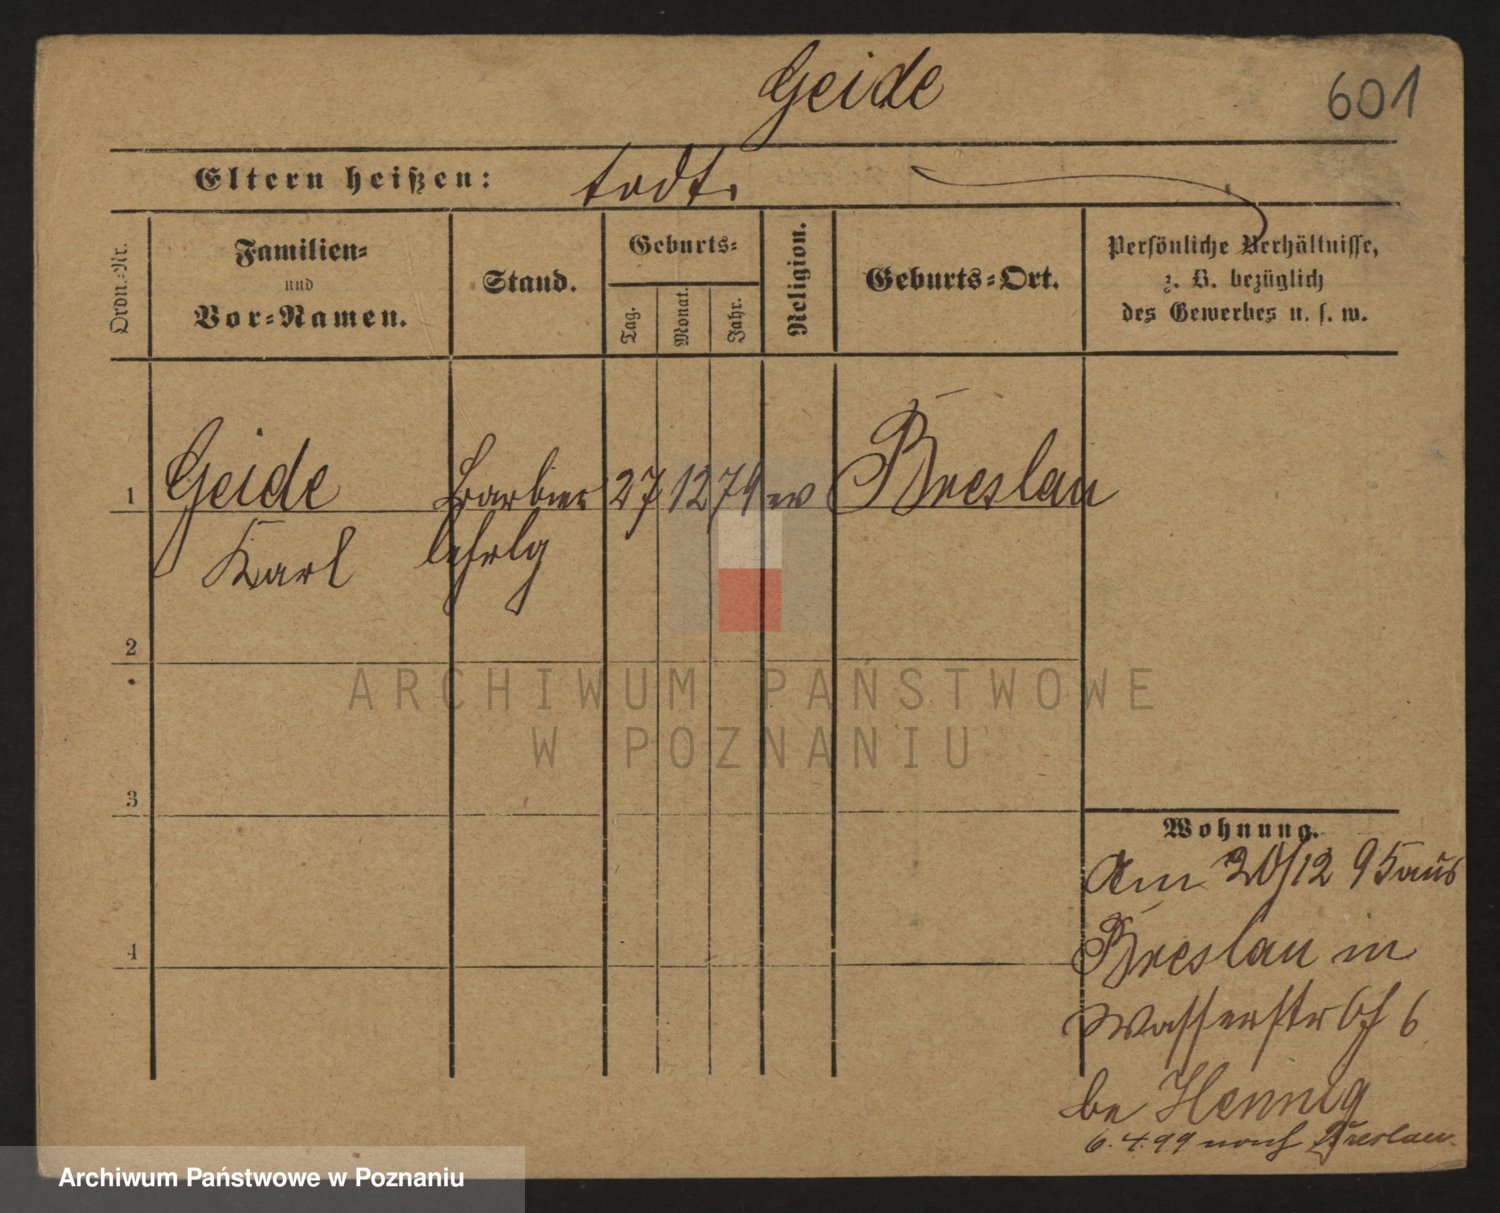 Geide
601
Eltern heißen: todt.
Ordn.-Nr.
Familien-
und
Vor-Namen.
Stand.
Geburts-
Tag.
Monat.
Jahr.
Religion.
Geburts-Ort.
Persönliche Verhältnisse,
z. B. bezüglich
des Gewerbes u. s. w.
1 Geide Barbier 27 12 79 ev Breslau
Karl lehrlg
2
3
4
Wohnung.
Am 20/12 95 aus
Breslau in
Wasserstr 6
be Hennig
6.4.99 nach Breslau.
ARCHIWUM PAŃSTWOWE
W POZNANIU
Archiwum Państwowe w Poznaniu